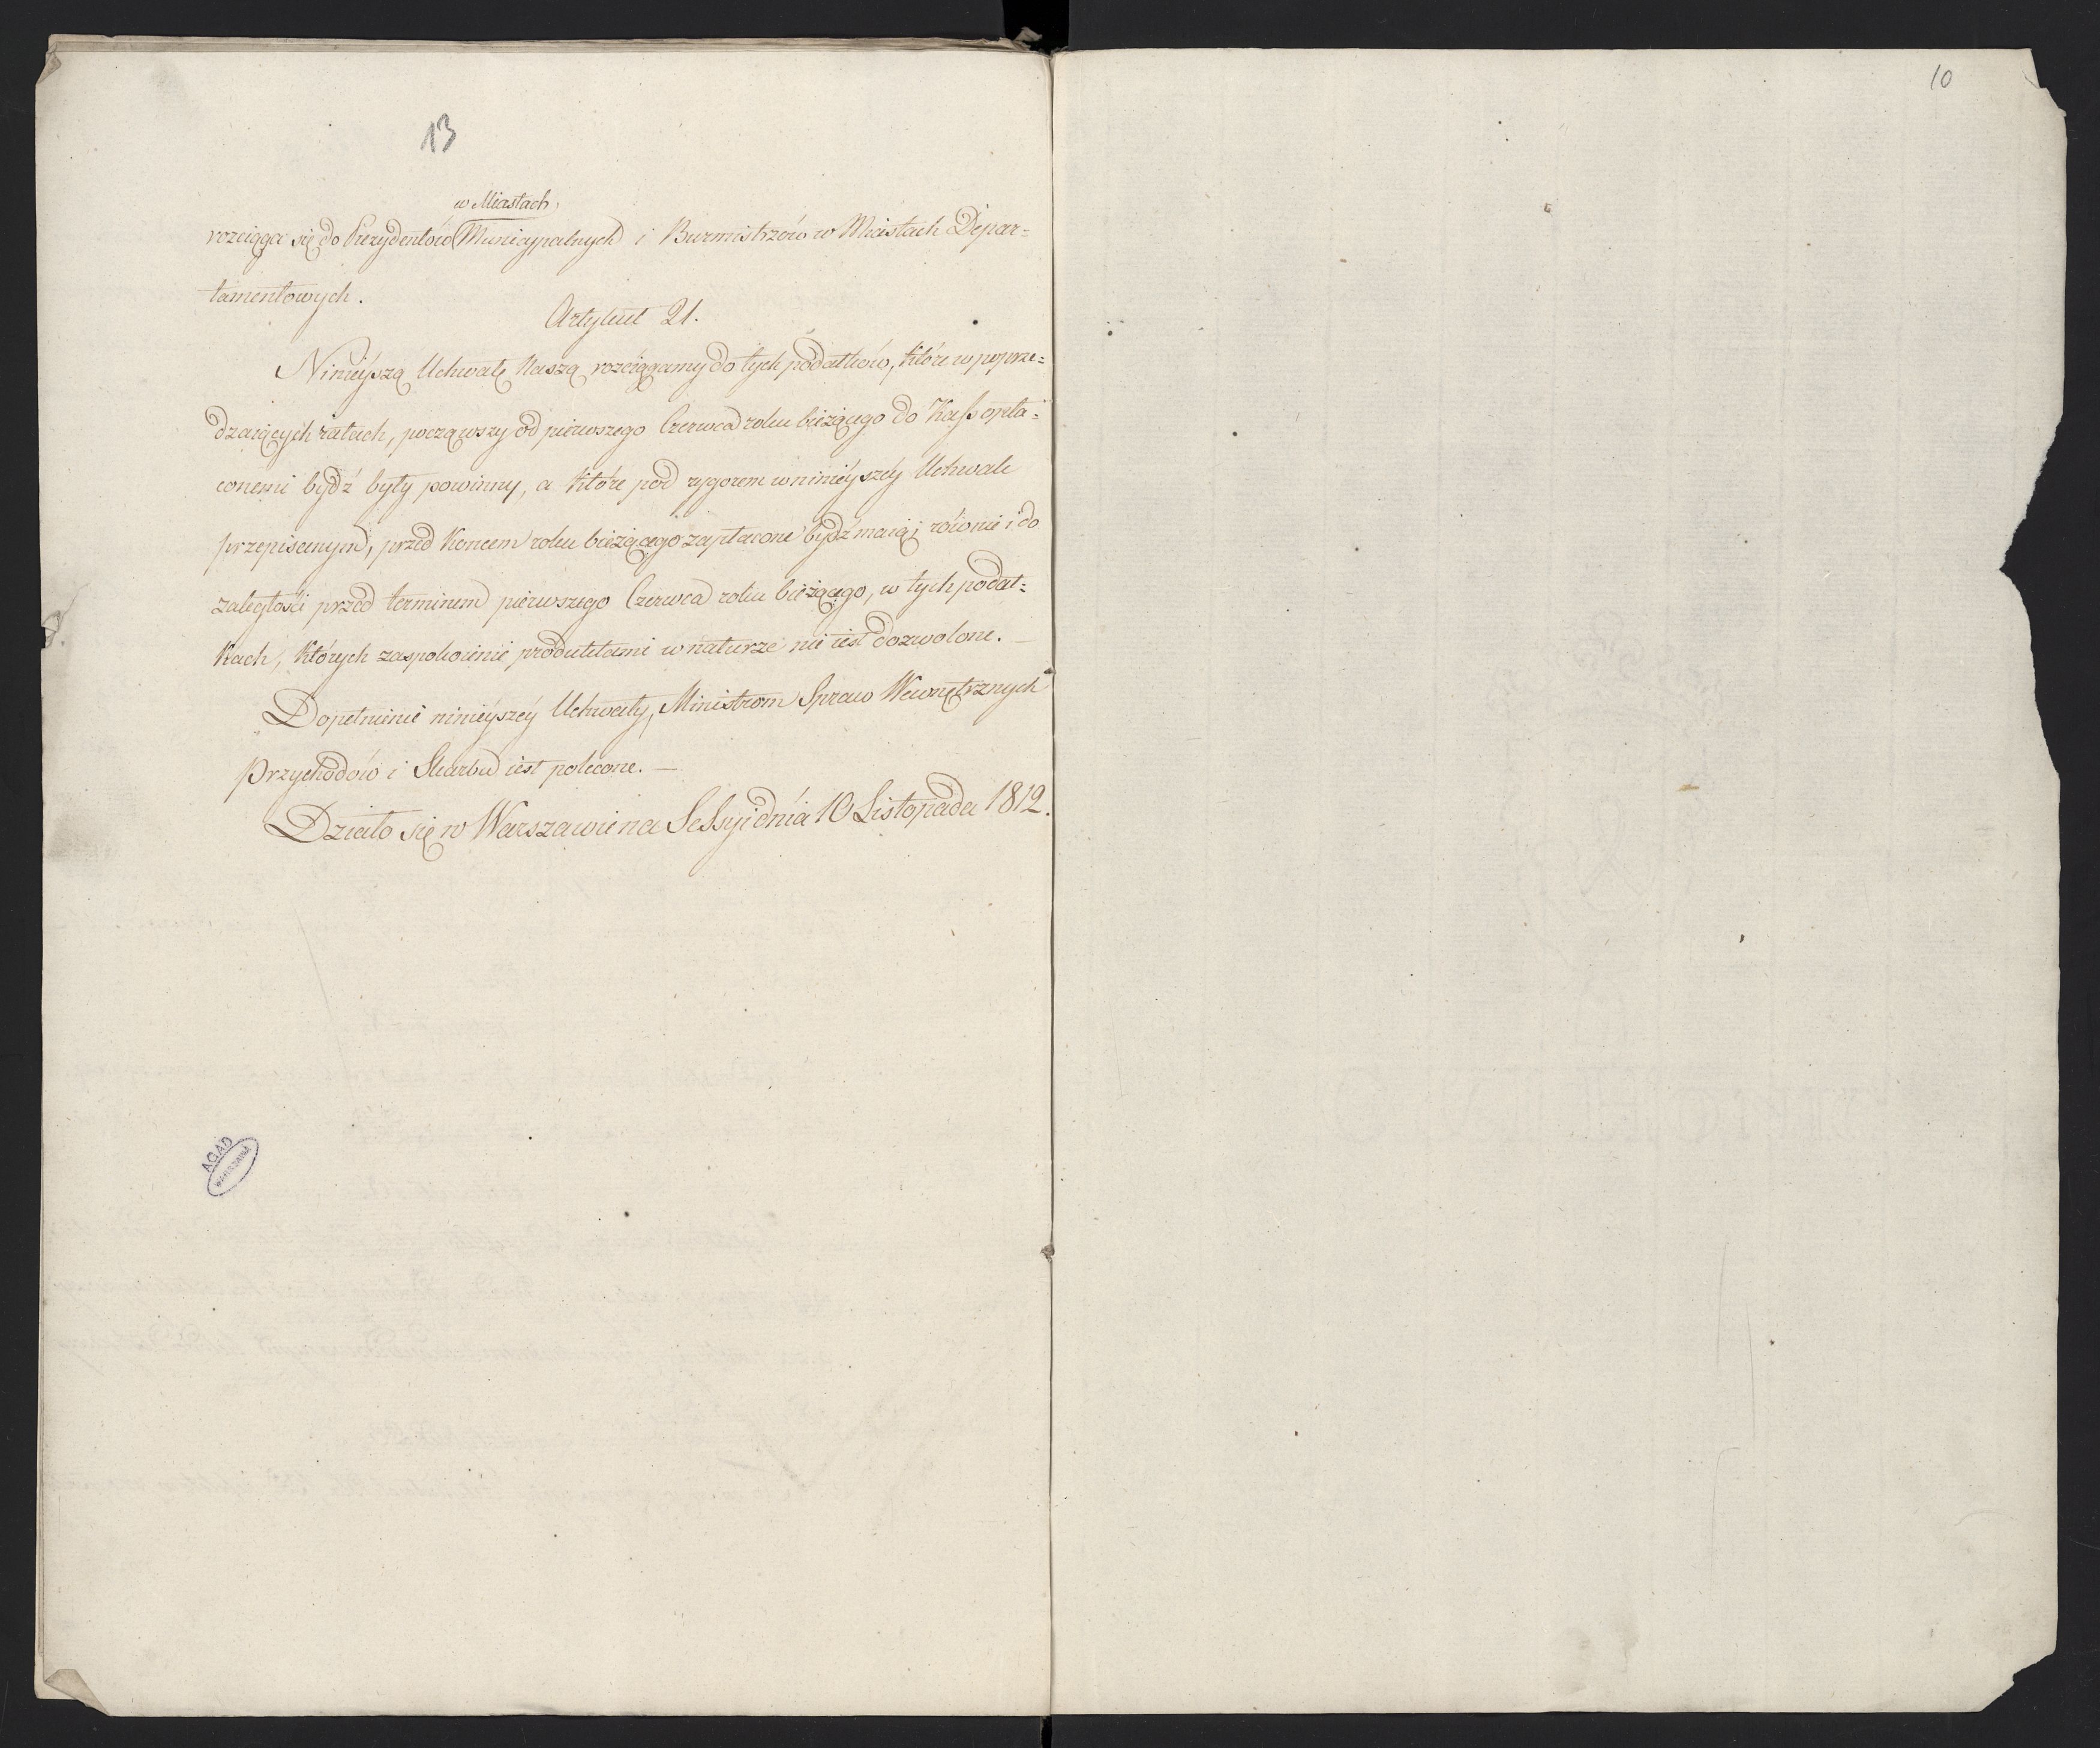 13
w Miastach
rozciąga się do Prezydentów Municypalnych i Burmistrzów w Miastach Depar=
tamentowych.
Artykuł 21.
Ninieyszą Uchwałę Naszą rozciągamy do tych podatków, które w poprze=
dzaiących ratach, począwszy od pierwszego Czerwca roku bieżącego do Kass opła=
conemi bydź były powinny, a które pod rygorem w ninieyszéy Uchwale
przepisanym, przed końcem roku bieżącego zapłacone bydź maią; równie i do
zaległości przed terminem pierwszego Czerwca roku bieżącego, w tych podat=
kach, których zaspokoienie produktami w naturze nie iest dozwolone. —
Dopełnienie ninieyszéy Uchwały, Ministrom Spraw Wewnętrznych
Przychodów i Skarbu iest polecone. —
Działo się w Warszawie na Sessyi dnia 10 Listopada 1812.
AGAD
WARSZAWA
10